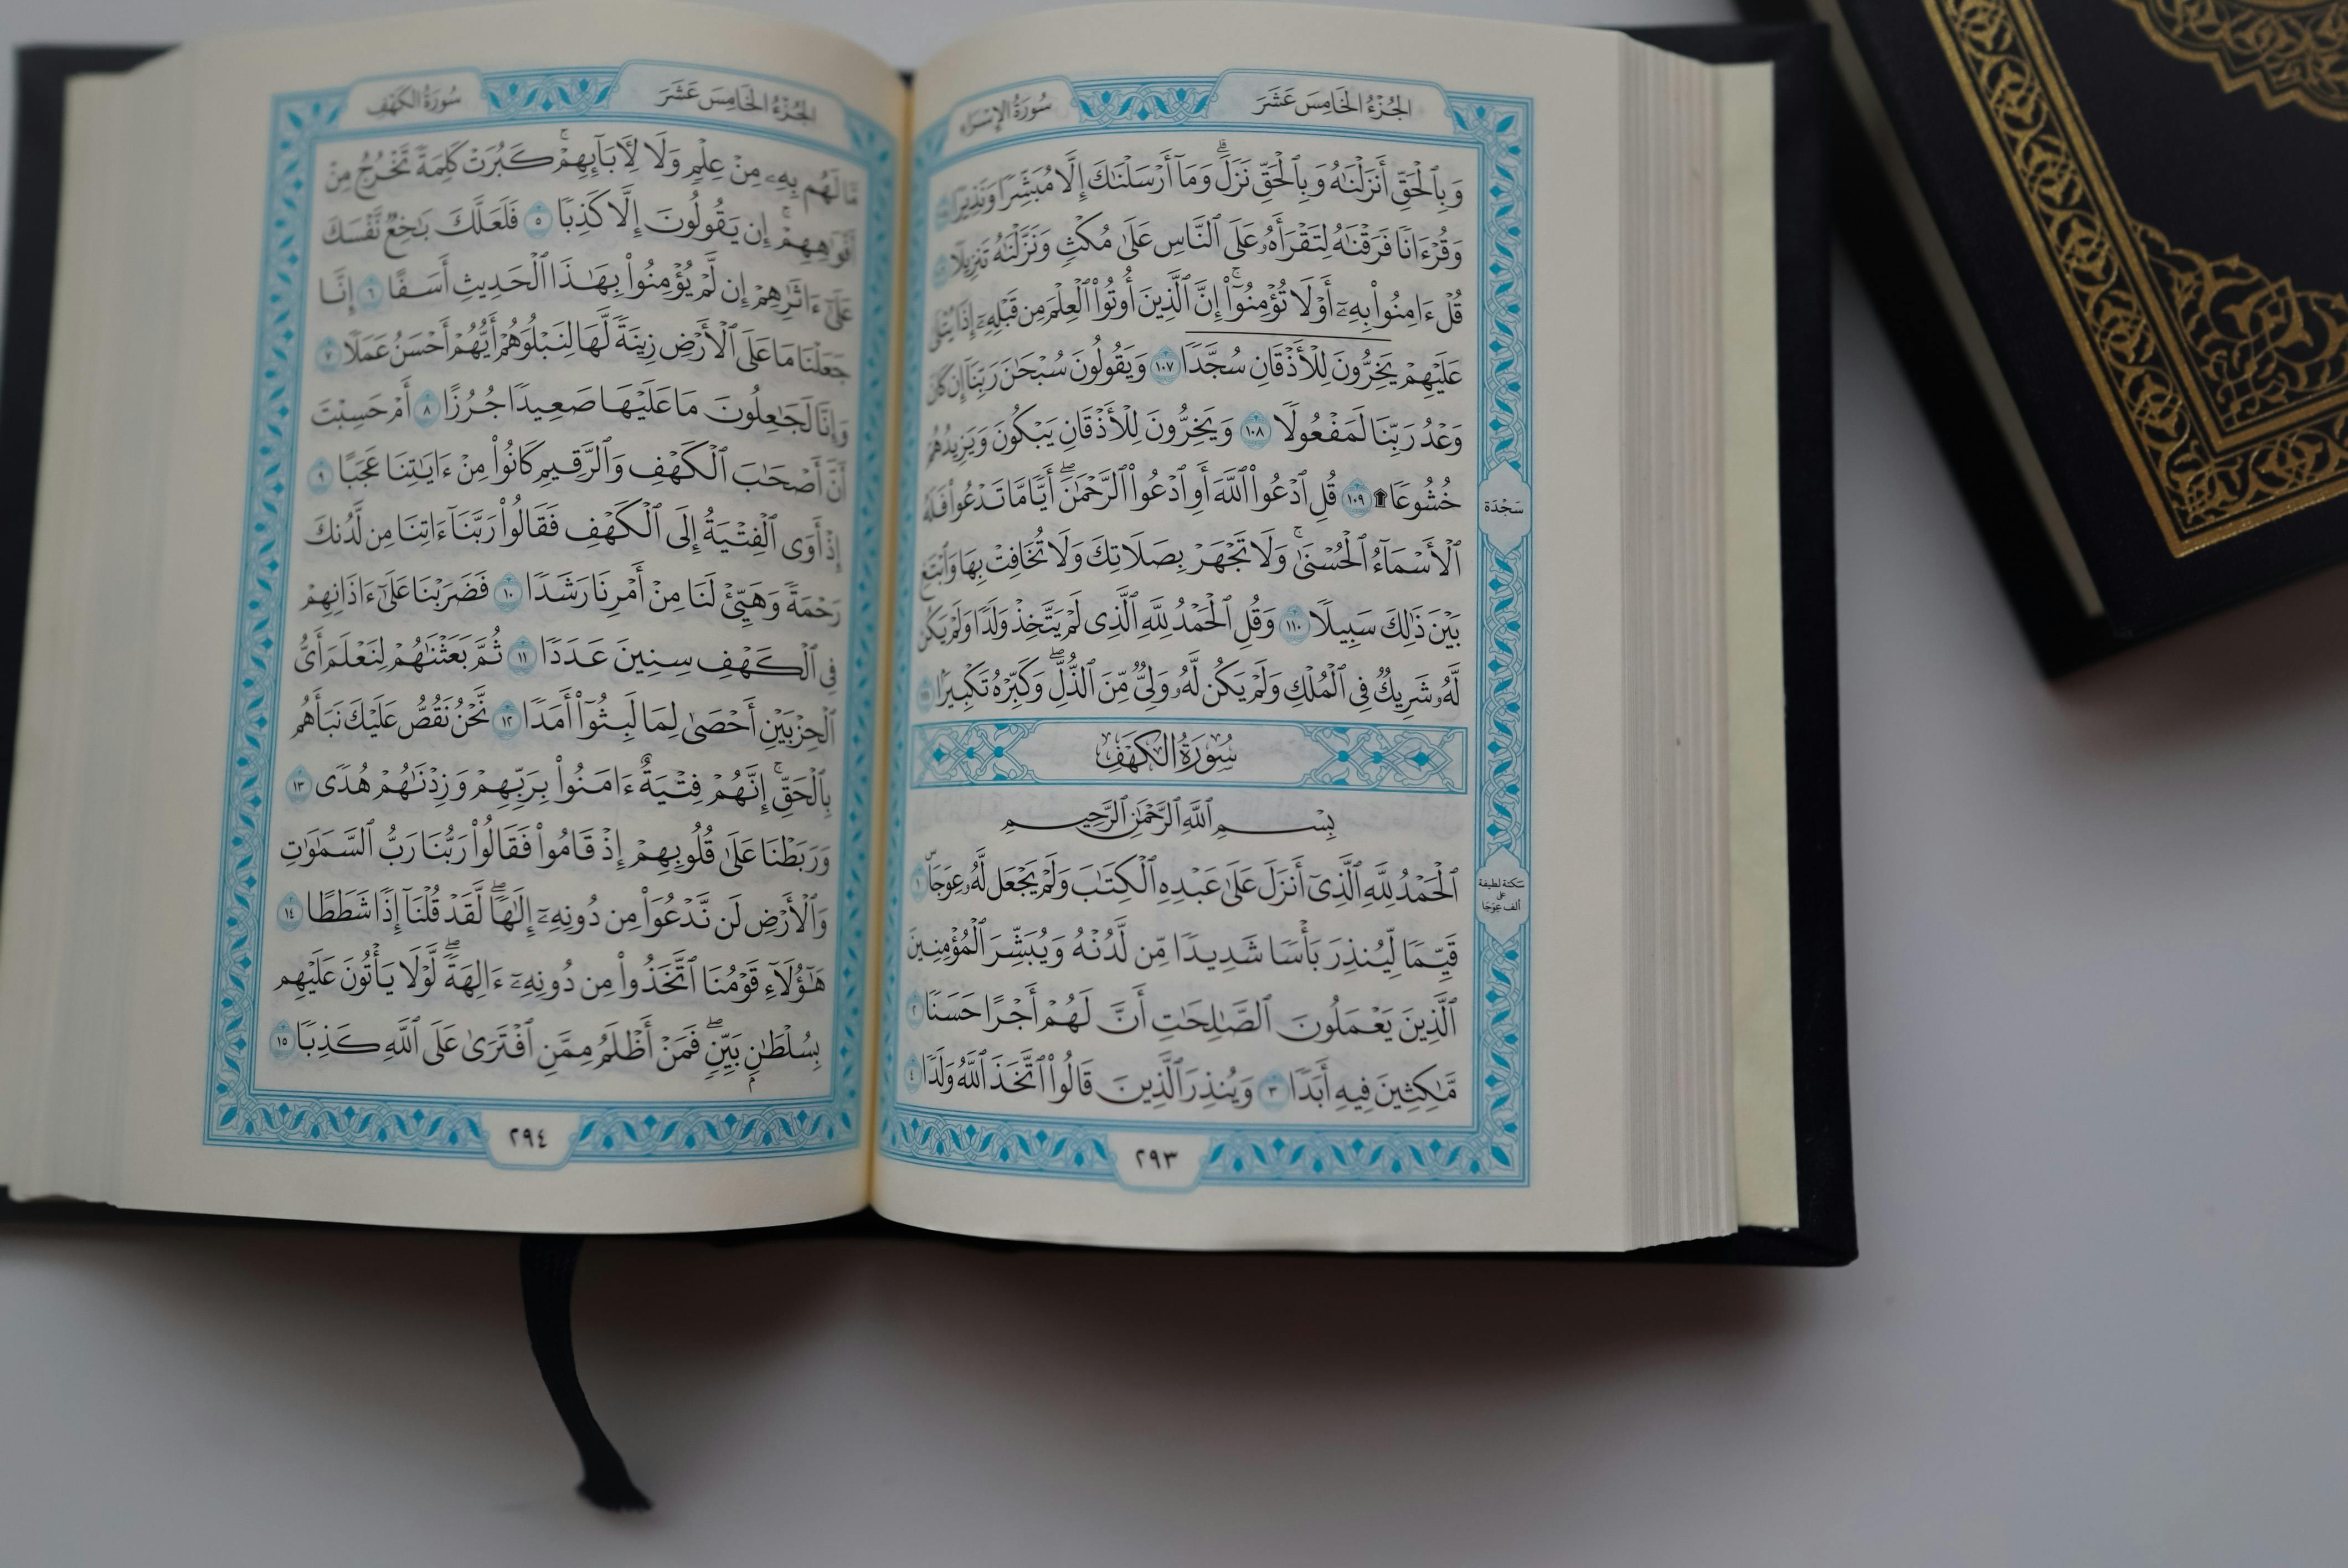 الجُزْءُ الخَامِسَ عَشَرَ
سُورَةُ الإِسْرَاء
وَبِٱلْحَقِّ أَنزَلْنَٰهُ وَبِٱلْحَقِّ نَزَلَۗ وَمَآ أَرْسَلْنَٰكَ إِلَّا مُبَشِّرًا وَنَذِيرًا
وَقُرْءَانًا فَرَقْنَٰهُ لِتَقْرَأَهُۥ عَلَى ٱلنَّاسِ عَلَىٰ مُكْثٍ وَنَزَّلْنَٰهُ تَنزِيلًا
قُلْ ءَامِنُوا۟ بِهِۦٓ أَوْ لَا تُؤْمِنُوٓا۟ۚ إِنَّ ٱلَّذِينَ أُوتُوا۟ ٱلْعِلْمَ مِن قَبْلِهِۦٓ إِذَا يُتْلَىٰ
عَلَيْهِمْ يَخِرُّونَ لِلْأَذْقَانِ سُجَّدًا ١٠٧ وَيَقُولُونَ سُبْحَٰنَ رَبِّنَآ إِن كَانَ
وَعْدُ رَبِّنَا لَمَفْعُولًا ١٠٨ وَيَخِرُّونَ لِلْأَذْقَانِ يَبْكُونَ وَيَزِيدُهُمْ
خُشُوعًا ۩ ١٠٩ قُلِ ٱدْعُوا۟ ٱللَّهَ أَوِ ٱدْعُوا۟ ٱلرَّحْمَٰنَۖ أَيًّا مَّا تَدْعُوا۟ فَلَهُ
سَجْدَة
ٱلْأَسْمَآءُ ٱلْحُسْنَىٰۚ وَلَا تَجْهَرْ بِصَلَاتِكَ وَلَا تُخَافِتْ بِهَا وَٱبْتَغِ
بَيْنَ ذَٰلِكَ سَبِيلًا ١١٠ وَقُلِ ٱلْحَمْدُ لِلَّهِ ٱلَّذِى لَمْ يَتَّخِذْ وَلَدًا وَلَمْ يَكُن
لَّهُۥ شَرِيكٌ فِى ٱلْمُلْكِ وَلَمْ يَكُن لَّهُۥ وَلِىٌّ مِّنَ ٱلذُّلِّۖ وَكَبِّرْهُ تَكْبِيرًۢا
سُورَةُ الكَهْفِ
بِسْمِ ٱللَّهِ ٱلرَّحْمَٰنِ ٱلرَّحِيمِ
ٱلْحَمْدُ لِلَّهِ ٱلَّذِىٓ أَنزَلَ عَلَىٰ عَبْدِهِ ٱلْكِتَٰبَ وَلَمْ يَجْعَل لَّهُۥ عِوَجَاۜ ١
سكتة لطيفة
على
ألف عِوَجَا
قَيِّمًا لِّيُنذِرَ بَأْسًا شَدِيدًا مِّن لَّدُنْهُ وَيُبَشِّرَ ٱلْمُؤْمِنِينَ
ٱلَّذِينَ يَعْمَلُونَ ٱلصَّٰلِحَٰتِ أَنَّ لَهُمْ أَجْرًا حَسَنًا ٢
مَّٰكِثِينَ فِيهِ أَبَدًا ٣ وَيُنذِرَ ٱلَّذِينَ قَالُوا۟ ٱتَّخَذَ ٱللَّهُ وَلَدًا ٤
٢٩٣
الجُزْءُ الخَامِسَ عَشَرَ
سُورَةُ الكَهْفِ
مَّا لَهُم بِهِۦ مِنْ عِلْمٍ وَلَا لِءَابَآئِهِمْۚ كَبُرَتْ كَلِمَةً تَخْرُجُ مِنْ
أَفْوَٰهِهِمْۚ إِن يَقُولُونَ إِلَّا كَذِبًا ٥ فَلَعَلَّكَ بَٰخِعٌ نَّفْسَكَ
عَلَىٰٓ ءَاثَٰرِهِمْ إِن لَّمْ يُؤْمِنُوا۟ بِهَٰذَا ٱلْحَدِيثِ أَسَفًا ٦ إِنَّا
جَعَلْنَا مَا عَلَى ٱلْأَرْضِ زِينَةً لَّهَا لِنَبْلُوَهُمْ أَيُّهُمْ أَحْسَنُ عَمَلًا ٧
وَإِنَّا لَجَٰعِلُونَ مَا عَلَيْهَا صَعِيدًا جُرُزًا ٨ أَمْ حَسِبْتَ
أَنَّ أَصْحَٰبَ ٱلْكَهْفِ وَٱلرَّقِيمِ كَانُوا۟ مِنْ ءَايَٰتِنَا عَجَبًا ٩
إِذْ أَوَى ٱلْفِتْيَةُ إِلَى ٱلْكَهْفِ فَقَالُوا۟ رَبَّنَآ ءَاتِنَا مِن لَّدُنكَ
رَحْمَةً وَهَيِّئْ لَنَا مِنْ أَمْرِنَا رَشَدًا ١٠ فَضَرَبْنَا عَلَىٰٓ ءَاذَانِهِمْ
فِى ٱلْكَهْفِ سِنِينَ عَدَدًا ١١ ثُمَّ بَعَثْنَٰهُمْ لِنَعْلَمَ أَىُّ
ٱلْحِزْبَيْنِ أَحْصَىٰ لِمَا لَبِثُوٓا۟ أَمَدًا ١٢ نَّحْنُ نَقُصُّ عَلَيْكَ نَبَأَهُم
بِٱلْحَقِّۚ إِنَّهُمْ فِتْيَةٌ ءَامَنُوا۟ بِرَبِّهِمْ وَزِدْنَٰهُمْ هُدًى ١٣
وَرَبَطْنَا عَلَىٰ قُلُوبِهِمْ إِذْ قَامُوا۟ فَقَالُوا۟ رَبُّنَا رَبُّ ٱلسَّمَٰوَٰتِ
وَٱلْأَرْضِ لَن نَّدْعُوَا۟ مِن دُونِهِۦٓ إِلَٰهًاۖ لَّقَدْ قُلْنَآ إِذًا شَطَطًا ١٤
هَٰٓؤُلَآءِ قَوْمُنَا ٱتَّخَذُوا۟ مِن دُونِهِۦٓ ءَالِهَةًۖ لَّوْلَا يَأْتُونَ عَلَيْهِم
بِسُلْطَٰنٍۭ بَيِّنٍۖ فَمَنْ أَظْلَمُ مِمَّنِ ٱفْتَرَىٰ عَلَى ٱللَّهِ كَذِبًا ١٥
٢٩٤